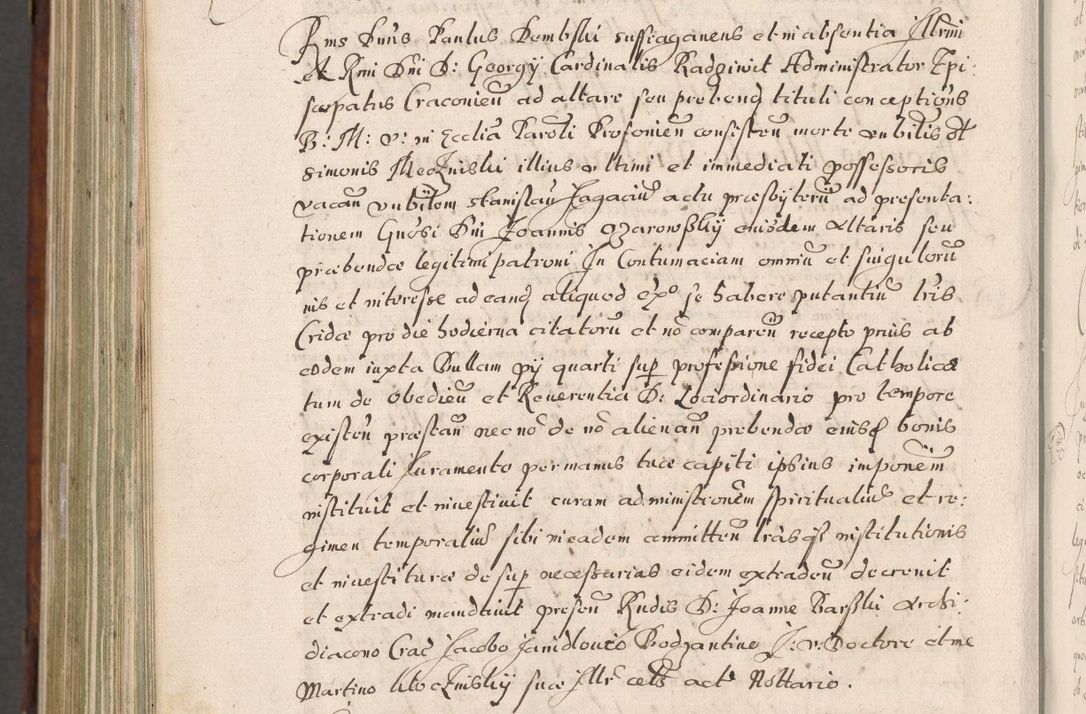 Rms Dnus Paulus Dembski suffraganeus et in absentia Illrmi
et Rmi Dni D: Georgÿ Cardinalis Radziwił Administrator Epi:
scopatus Cracovien ad altare seu prebend tituli conceptionis
B: M: V: in Ecclia Paroli Proſovien consisten morte nubilis olt
Simonis Meczinski illius ultimi et immediati possessoris
vacan nubilem Stanislau Jagaciu actu præsbyteru ad presenta:
tionem Gnosi Dni Joannis Ozarowskÿ eiusdem altaris seu
præbendæ legitimi patroni In Contumaciam omniu et singuloru
ius et interesse ad eand aliquod exo se habere putantiu lris
Cridæ pro die hodierna citatoru et no comparen recepto prius ab
eodem iuxta Bullam pÿ quarti sup professione fidei Catholicæ
tum de obedien et Reuerentia D: Lociordinario pro tempore
existen præstan necno de no alienan prebendæ eiusq bonis
corporali Juramento per manus suæ capiti ipsius imponem
instituit et inuestiuit curam administronem spiritualiu et re:
gimen temporaliu sibi in eadem committen lrasq institutionis
et inuestituræ de sup necessarias eidem extraden decreuit
et extradi mandauit presen Rndis D: Joanne Barski Archi:
diacono Crac Jacobo Janidlouio Bodzantino J: V: Doctore et me
Martino Kłoczinskÿ suæ Illr cels act Nottario.